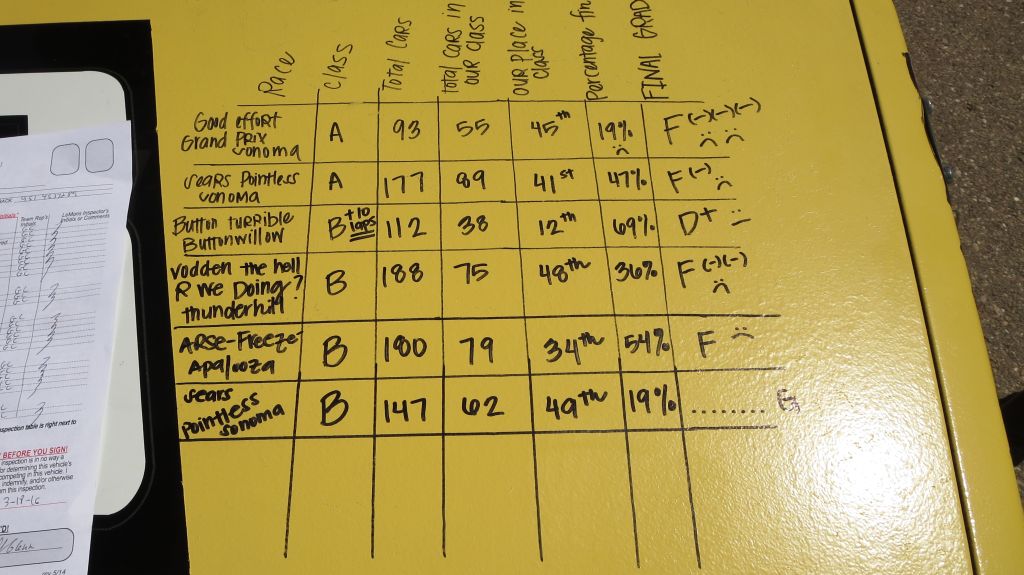 Race
Class
Total Cars
Total Cars in
our Class
our Place in
class
Percentage
FINAL
Good effort
Grand PRIX
Sonoma
A
93
55
45th
19%
F(-)(-)(-)
Sears Pointless
Sonoma
A
177
89
41st
47%
F(-)
Button Turrible
Buttonwillow
B +10
laps
112
38
12th
69%
D+
Vodden the hell
R we Doing?
Thunderhill
B
188
75
48th
36%
F(-)(-)
ARSe-Freeze-
Apalooza
B
180
79
34th
54%
F
Sears
pointless
Sonoma
B
147
62
49th
19%
........
Team Rep's
Initial
LeMons Inspector's
Initials or Comments
inspection table is right next to
BEFORE YOU SIGN!
inspection is in no way a
for determining this vehicle's
competing in this vehicle. I
indemnify, and/or otherwise
this inspection.
3-19-16
5/14